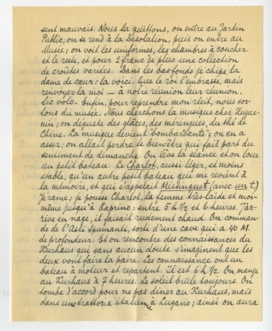 sent mauvais. Nous la quittons, on entre au Jardin
Public, on se rend à la désolation, puis on entre au
Musée; on voit les uniformes, les chambres à coucher
et le reste, et pour 2 francs de plus une collection
de croûtes variées. Dans les bas-fonds je chipe la
dame de cœur: la voici. Que le roi l'embrasse, mais
renvoyez la moi — à notre réunion leur réunion.
Enfin, pour reprendre mon récit, nous sor-
tons du musée. Nous cherchons la musique chez
on déguste des glaces, des meringues, du thé de
Chine. La musique devient bombardante; on en a
assez; on allait perdre le bien-être que fait part du
sentiment de dimanche. On lève la séance et on loue
un petit bateau. Le Charlot, aussi léger, et moins
stable, qu'un autre petit bateau qui me revient à
la mémoire, et qui s'appelait Mistinguet (avec un t.)
Je rame; je pousse Charlot, sa femme très-aide et moi-
même jusqu'à Caprino entre 5 h ½ et 6 heures. J'ar-
rive en nage, il faisait rudement chaud. On comman-
de de l'Asti spumante, sorti d'une cave qui a 40 M.
de profondeur. Et on rencontre des connaissances du
Kurhaus qui sans aucun doute s'imaginent que les
deux vont faire la paire. Les connaissances ont un
bateau à moteur et repartent. Il est 6 h ½. On mange
au Kurhaus à 7 heures. Le soleil brûle toujours. On
tombe d'accord pour ne pas dîner au Kurhaus, mais
dans une trattoria à Lugano; ainsi on aura